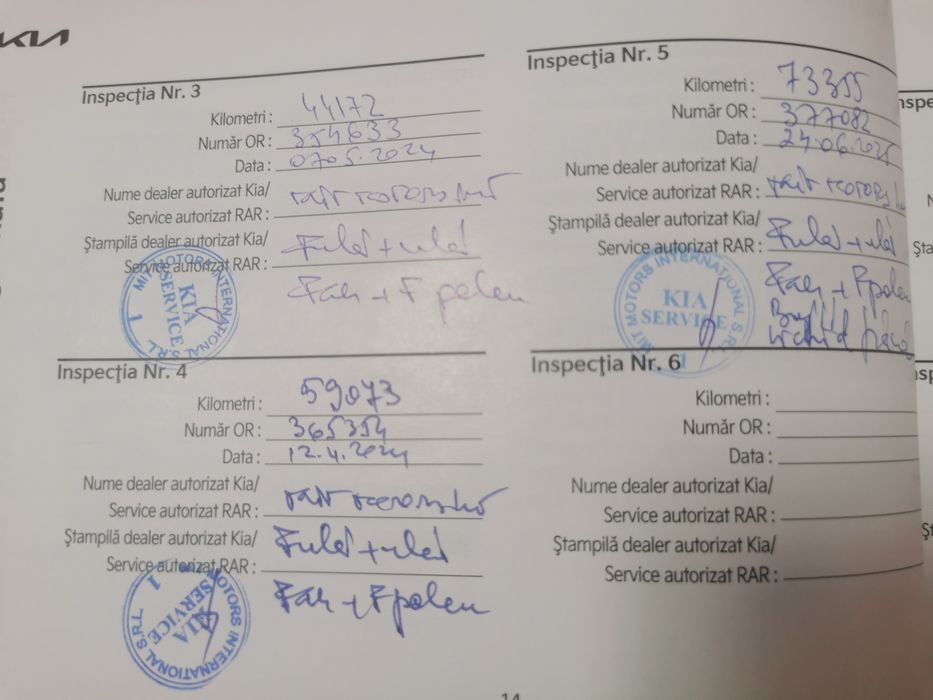 KIA
Inspecţia Nr. 3
Kilometri : 44172
Număr OR : 354633
Data : 07.05.2024
Nume dealer autorizat Kia/
Service autorizat RAR :
Ştampilă dealer autorizat Kia/
Service autorizat RAR : Fulei + ulei
Fan + F polen
MIT MOTORS INTERNATIONAL S.R.L
KIA
SERVICE
1
Inspecţia Nr. 4
Kilometri : 59073
Număr OR : 365354
Data : 12.4.2024
Nume dealer autorizat Kia/
Service autorizat RAR :
Ştampilă dealer autorizat Kia/
Service autorizat RAR : Fulei + ulei
Fan + F polen
MOTORS INTERNATIONAL S.R.L
KIA
SERVICE
1
Inspecţia Nr. 5
Kilometri : 73355
Număr OR : 377082
Data : 24.06.2025
Nume dealer autorizat Kia/
Service autorizat RAR :
Ştampilă dealer autorizat Kia/
Service autorizat RAR : Fulei + ulei
Fan + F polen
MIT MOTORS INTERNATIONAL S.R.L
KIA
SERVICE
1
Inspecţia Nr. 6
Kilometri :
Număr OR :
Data :
Nume dealer autorizat Kia/
Service autorizat RAR :
Ştampilă dealer autorizat Kia/
Service autorizat RAR :
14